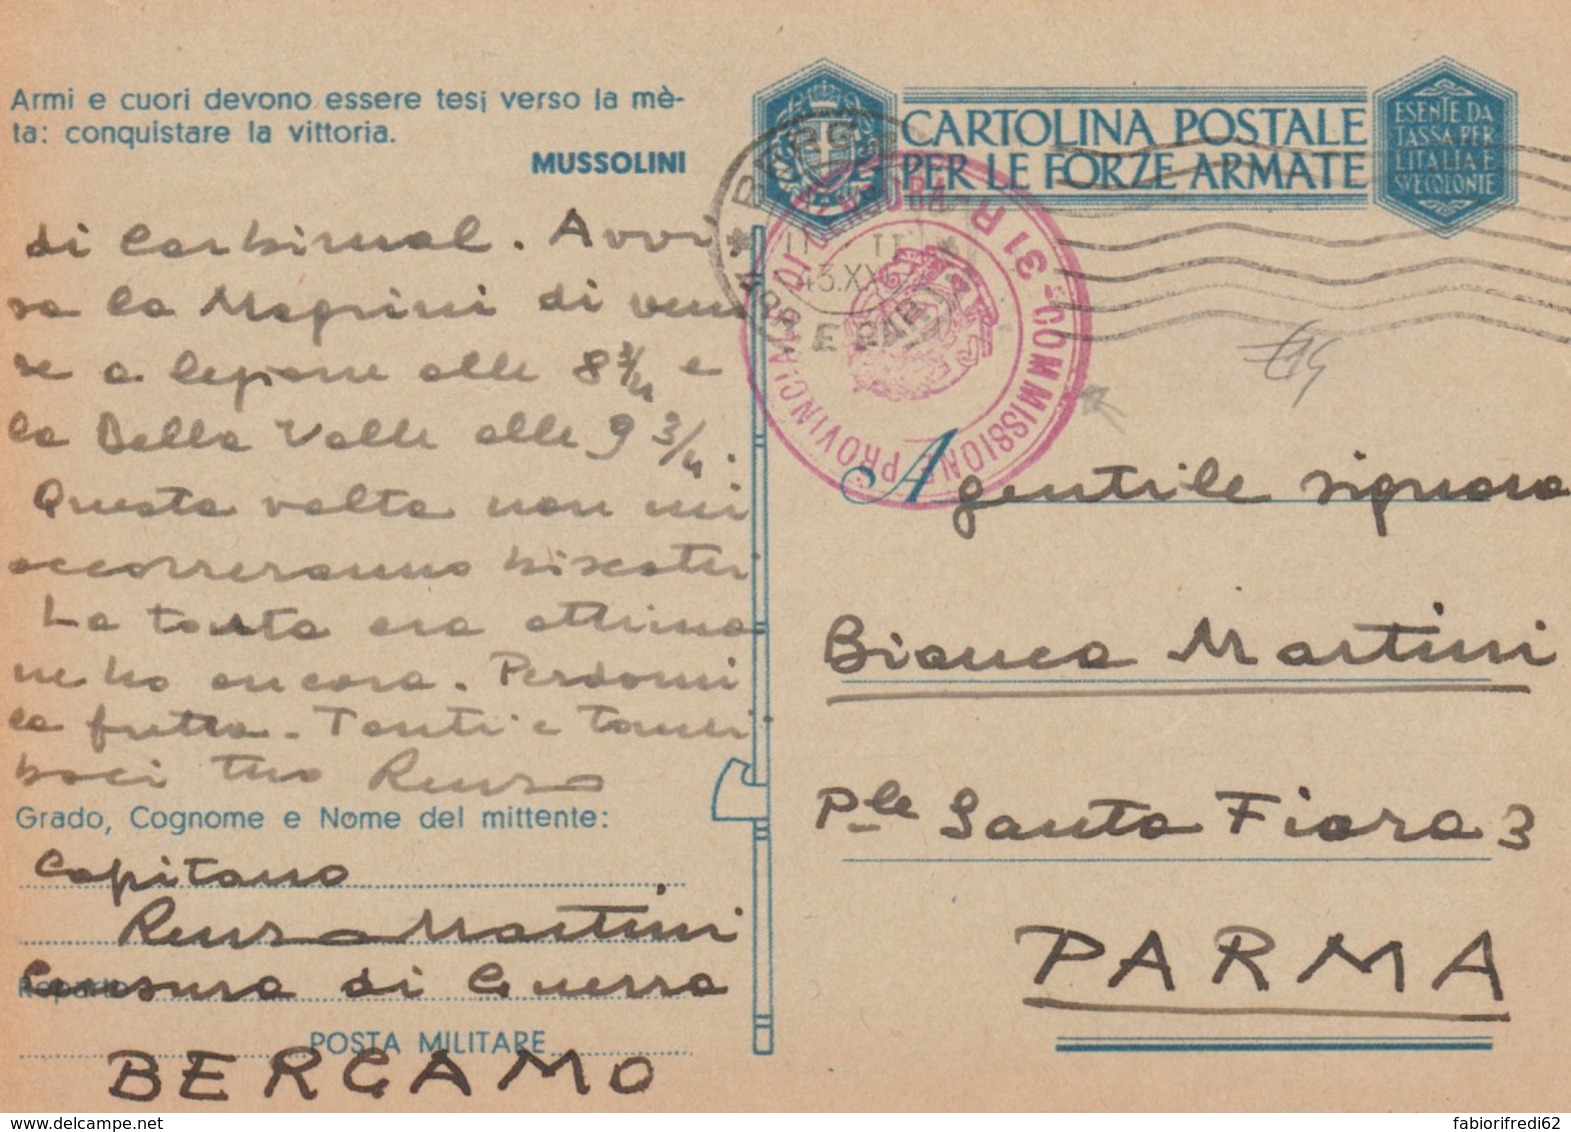 Armi e cuori devono essere tesi verso la mè-
ta: conquistare la vittoria.
MUSSOLINI
di Carbirnal. Avvi
sa la Magrini di veni
re a legione alle 8 3/4 e
la Della Valle alle 9 3/4.
Questa volta non mi
occorreranno biscotti
La torta era ottima
ne ho ancora. Perdoni
la fretta. Tanti e tanti
baci tuo Renzo
Grado, Cognome e Nome del mittente:
Capitano
Renzo Martini
Censura di Guerra
Reparto
POSTA MILITARE
BERGAMO
CARTOLINA POSTALE
PER LE FORZE ARMATE
ESENTE DA
TASSA PER
L'ITALIA E
SVE COLONIE
43.XXI
31 R - COMMISSIONE PROVINCIALE DI CENSURA
A gentile signora
Bianca Martini
P.le Santa Fiora 3
PARMA
€15
delcampe.net
fabiorifredi62